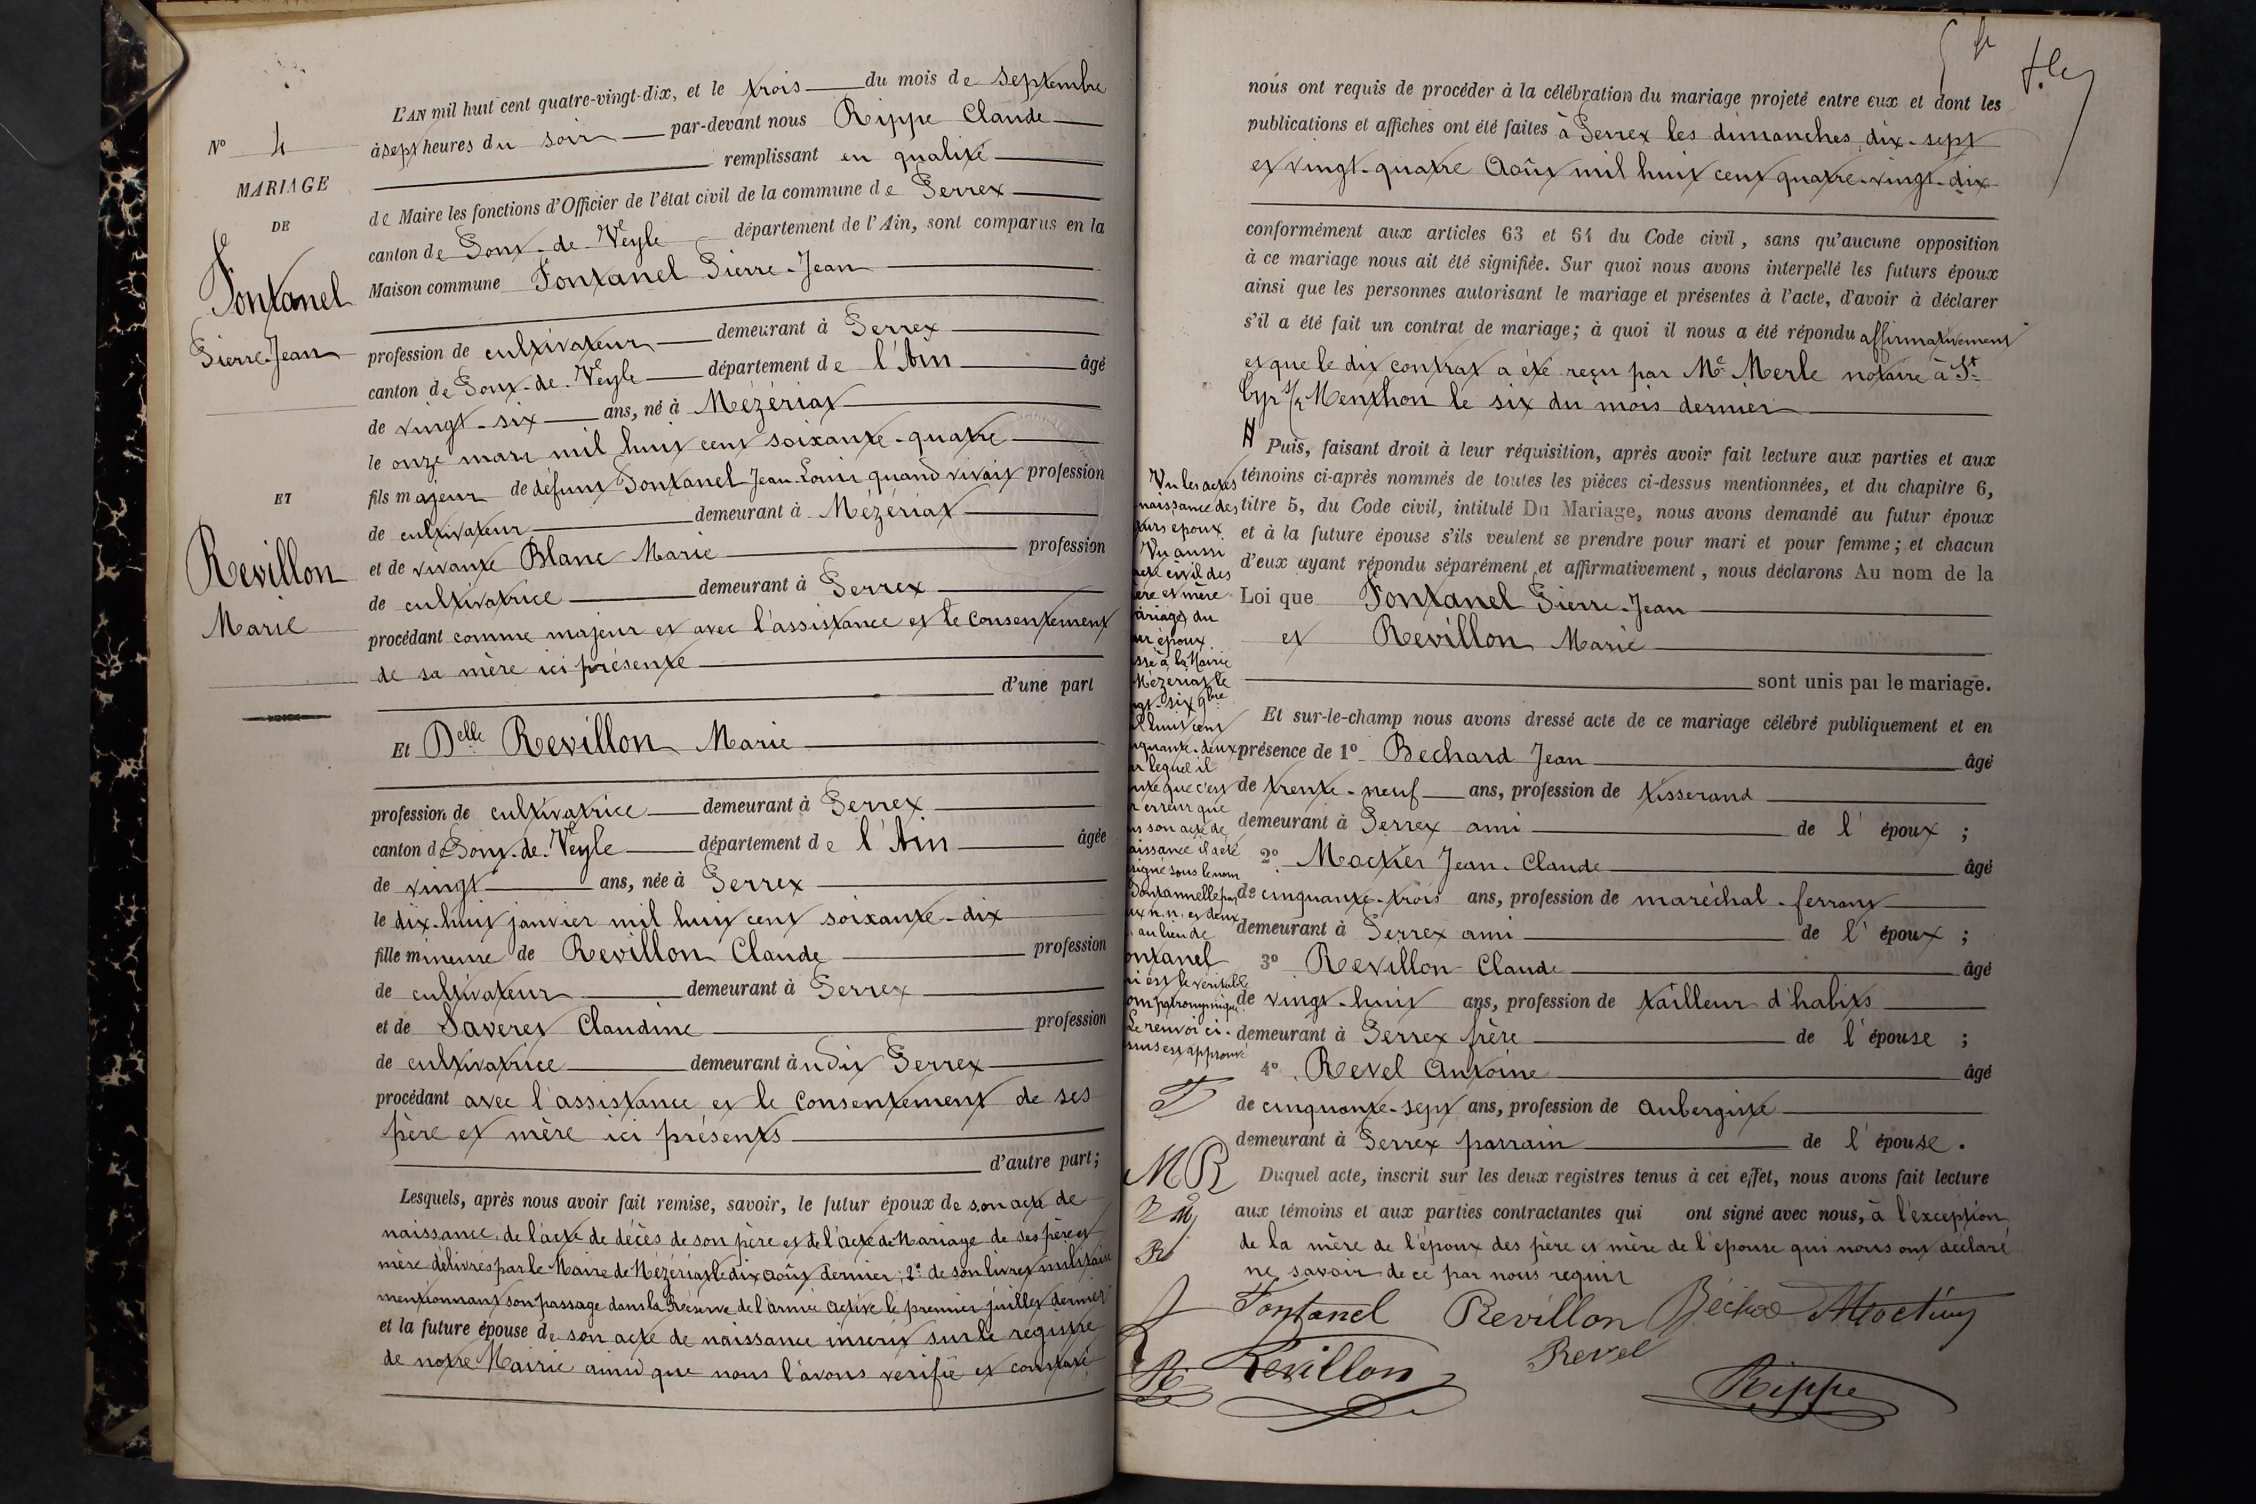 N° 4
MARIAGE
DE
Fontanel
Pierre-Jean
ET
Revillon
Marie
L'AN mil huit cent quatre-vingt-dix, et le trois du mois de Septembre
à sept heures du soir par-devant nous Rippe Claude
remplissant en qualité
de Maire les fonctions d'Officier de l'état civil de la commune de Perrex
canton de Pont-de-Veyle département de l'Ain, sont comparus en la
Maison commune Fontanel Pierre-Jean
profession de cultivateur demeurant à Perrex
canton de Pont-de-Veyle département de l'Ain âgé
de vingt-six ans, né à Mézériat
le onze mars mil huit cent soixante-quatre
fils majeur de défunt Fontanel Jean-Louis quand vivait profession
de cultivateur demeurant à Mézériat
et de vivante Blanc Marie profession
de cultivatrice demeurant à Perrex
procédant comme majeur et avec l'assistance et le consentement
de sa mère ici présente
d'une part
Et Delle Revillon Marie
profession de cultivatrice demeurant à Perrex
canton de Pont-de-Veyle département de l'Ain âgée
de vingt ans, née à Perrex
le dix-huit janvier mil huit cent soixante-dix
fille mineure de Revillon Claude profession
de cultivateur demeurant à Perrex
et de Saveret Claudine profession
de cultivatrice demeurant à udit Perrex
procédant avec l'assistance et le consentement de ses
père et mère ici présents
d'autre part;
Lesquels, après nous avoir fait remise, savoir, le futur époux de son acte de
naissance, de l'acte de décès de son père et de l'acte de Mariage de ses père et
mère délivrés par le Maire de Mézériat le dix août dernier; 2° de son livret militaire
mentionnant son passage dans la Réserve de l'armée active le premier juillet dernier
et la future épouse de son acte de naissance inscrit sur le registre
de notre Mairie ainsi que nous l'avons verifié et constaté
nous ont requis de procéder à la célébration du mariage projeté entre eux et dont les
publications et affiches ont été faites à Perrex les dimanches dix-sept
et vingt-quatre Août mil huit cent quatre-vingt-dix
conformément aux articles 63 et 64 du Code civil, sans qu'aucune opposition
à ce mariage nous ait été signifiée. Sur quoi nous avons interpellé les futurs époux
ainsi que les personnes autorisant le mariage et présentes à l'acte, d'avoir à déclarer
s'il a été fait un contrat de mariage; à quoi il nous a été répondu affirmativement
et que le dit contrat a été reçu par Me Merle notaire à St
Cyr s/ Menthon le six du mois dernier
Puis, faisant droit à leur réquisition, après avoir fait lecture aux parties et aux
témoins ci-après nommés de toutes les pièces ci-dessus mentionnées, et du chapitre 6,
titre 5, du Code civil, intitulé Du Mariage, nous avons demandé au futur époux
et à la future épouse s'ils veulent se prendre pour mari et pour femme; et chacun
d'eux ayant répondu séparément et affirmativement, nous déclarons Au nom de la
Loi que Fontanel Pierre-Jean
et Revillon Marie
sont unis par le mariage.
Et sur-le-champ nous avons dressé acte de ce mariage célébré publiquement et en
présence de 1° Bechard Jean âgé
de trente-neuf ans, profession de tisserand
demeurant à Perrex ami de l'époux;
2° Moctier Jean-Claude âgé
de cinquante-trois ans, profession de maréchal-ferrant
demeurant à Perrex ami de l'époux;
3° Revillon Claude âgé
de vingt-huit ans, profession de tailleur d'habits
demeurant à Perrex frère de l'épouse;
4° Revel Antoine âgé
de cinquante-sept ans, profession de aubergiste
demeurant à Perrex parrain de l'épouse.
Duquel acte, inscrit sur les deux registres tenus à cet effet, nous avons fait lecture
aux témoins et aux parties contractantes qui ont signé avec nous, à l'exception
de la mère de l'époux des père et mère de l'épouse qui nous ont déclaré
ne savoir de ce par nous requis
Vu les actes
naissance des
époux
Vu aussi
civil des
père et mère
du
époux
à la Mairie
Mézériat le
six 9bre
huit cent
deux
lequel il
que c'est
erreur que
son acte de
naissance il a été
signé sous le nom
et deux
au lieu de
Fontanel
est le véritable
nom patronymique
Le renvoi ci-
est approuvé
MR
Fontanel Revillon Moctier
Revillon Revel Rippe